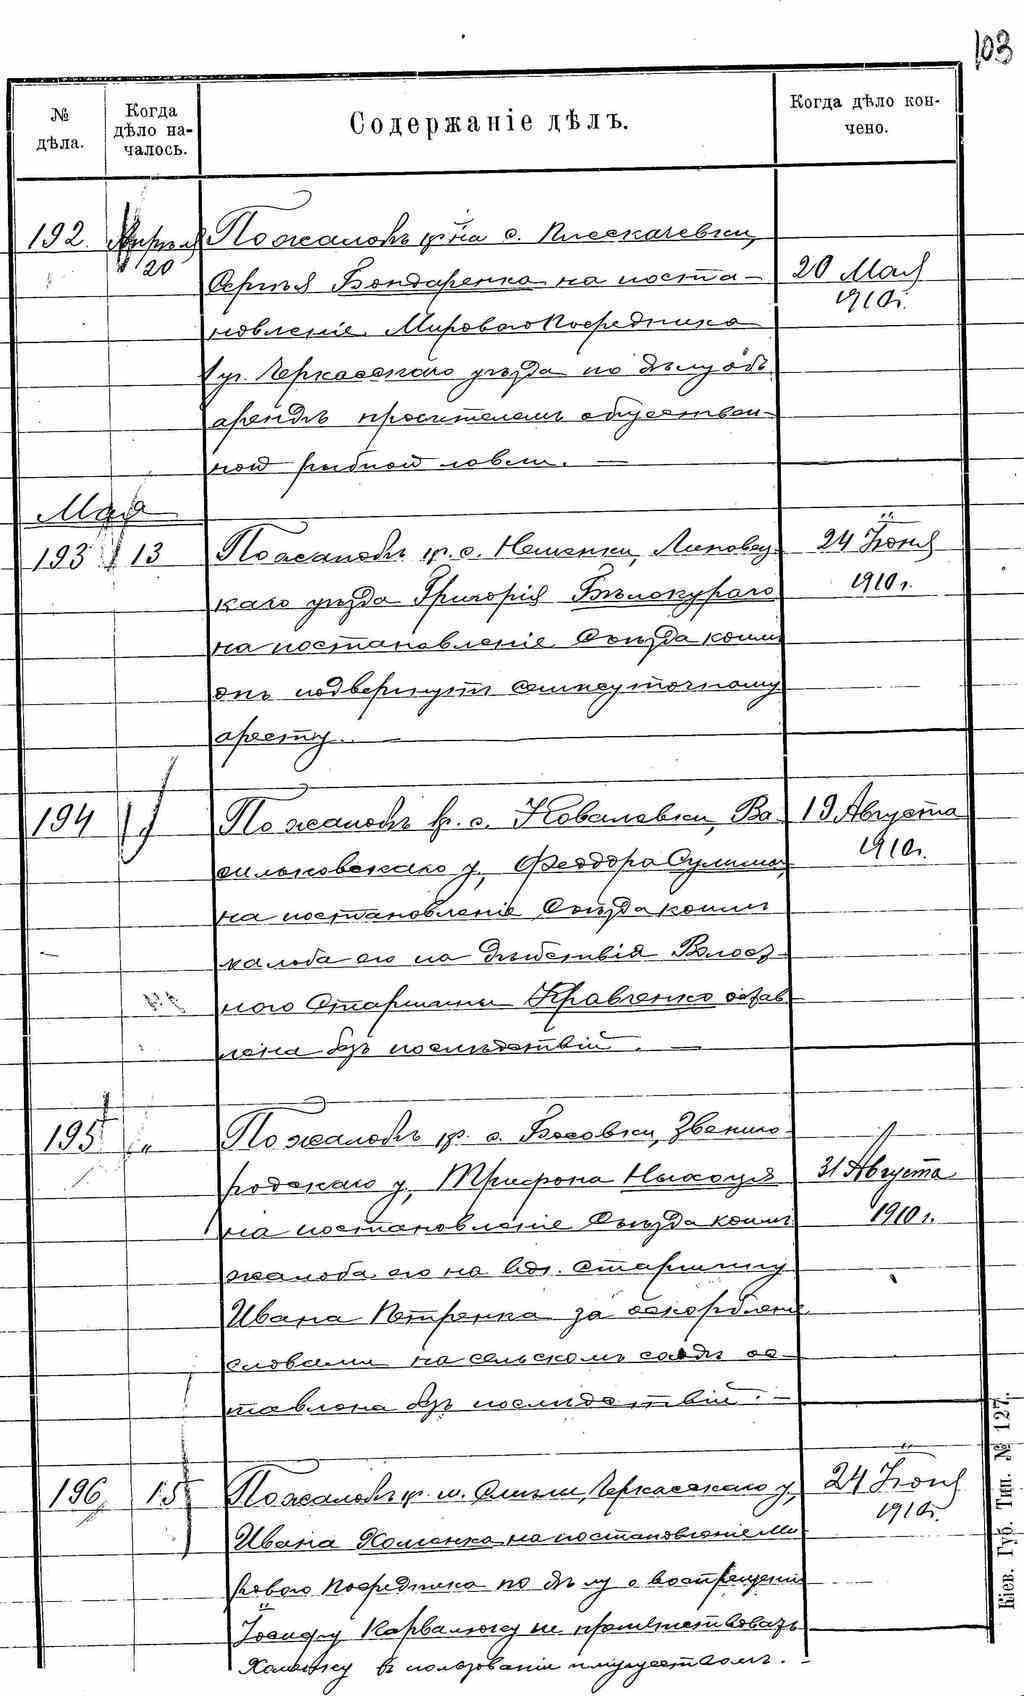 103
№ дѣла.
Когда дѣло началось.
Содержаніе дѣлъ.
Когда дѣло кончено.
192. Апрѣля 20
По жалобѣ кр-на с. Плескачевки,
Сергѣя Бондаренка на поста-
новленіе Мирового Посредника
1 уч. Черкасскаго уѣзда по дѣлу объ
арендѣ просителемъ обществен-
ной рыбной ловли. —
20 Мая
1910 г.
Мая
193 13
По жалобѣ кр. с. Неменки, Липовец-
каго уѣзда Григорія Бѣлокураго
на постановленіе Съѣзда коимъ
онъ подвергнутъ семисуточному
аресту. —
24 Іюня
1910 г.
194 "
По жалобѣ кр. с. Ковалевки, Ва-
сильковскаго у, Феодора Сулима,
на постановленіе Съѣзда коимъ
жалоба его на дѣйствія Волост-
ного Старшины Кравченко остав-
лена безъ послѣдствій. —
19 Августа
1910 г.
195 "
По жалобѣ кр. с. Босовки, Звениго-
родскаго у, Трифона
на постановленіе Съѣзда коимъ
жалоба его на быв. Старшину
Ивана Петренка за оскорбленіе
словами на сельскомъ сходѣ ос-
тавлена безъ послѣдствій. —
31 Августа
1910 г.
196 15
По жалобѣ кр. м. Смѣлы, Черкасскаго у,
Ивана Хоменка на постановленіе Ми-
рового Посредника по дѣлу о воспрещеніи
Іосифу Карвалюку не препятствовать
Хоменку въ пользованіи имуществомъ. —
24 Іюня
1910 г.
Кіев. Губ. Тип. № 127.